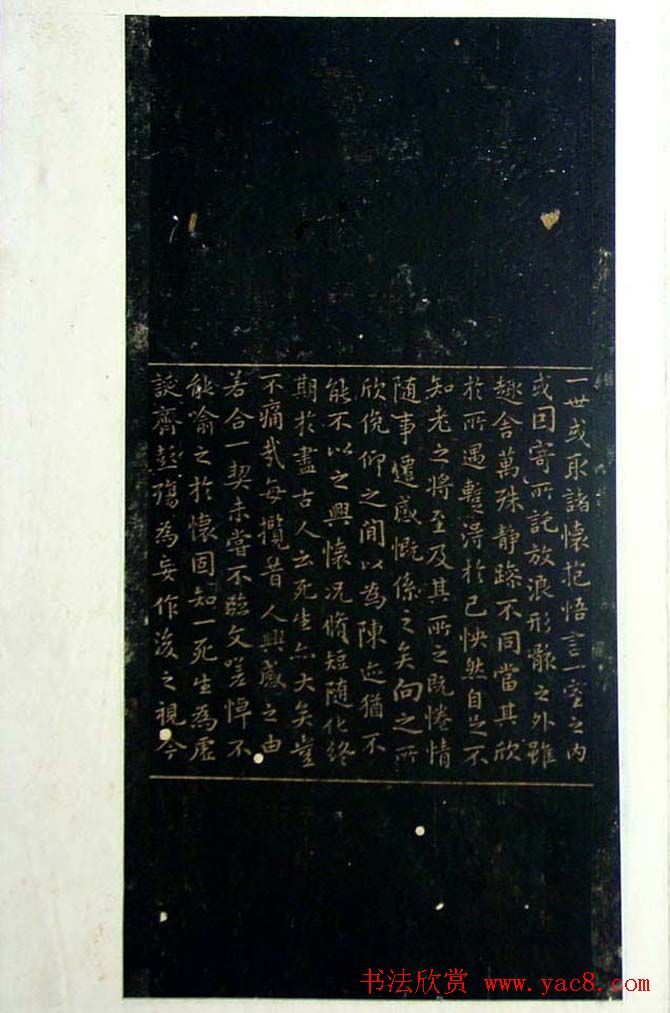 一世或取諸懷抱悟言一室之內
或因寄所託放浪形骸之外雖
趣舍萬殊静躁不同當其欣
於所遇暫得於己怏然自足不
知老之将至及其所之既惓情
随事遷感慨係之矣向之所
欣俛仰之間以為陳迹猶不
能不以之興懷况脩短随化終
期於盡古人云死生亦大矣豈
不痛哉每攬昔人興感之由
若合一契未嘗不臨文嗟悼不
能喻之於懷固知一死生為虚
誕齊彭殤為妄作後之視今
书法欣赏 www.yac8.com